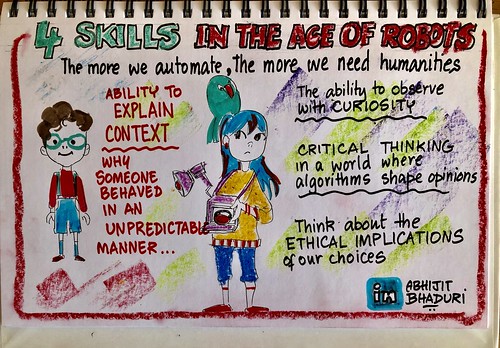 4 SKILLS IN THE AGE OF ROBOTS
The more we automate, The more we need humanities
ABILITY TO
EXPLAIN
CONTEXT
WHY
SOMEONE
BEHAVED
IN AN
UNPREDICTABLE
MANNER...
The ability to observe
with CURIOSITY
CRITICAL THINKING
in a world where
algorithms shape opinions
Think about the
ETHICAL IMPLICATIONS
of our choices
in ABHIJIT
BHADURI